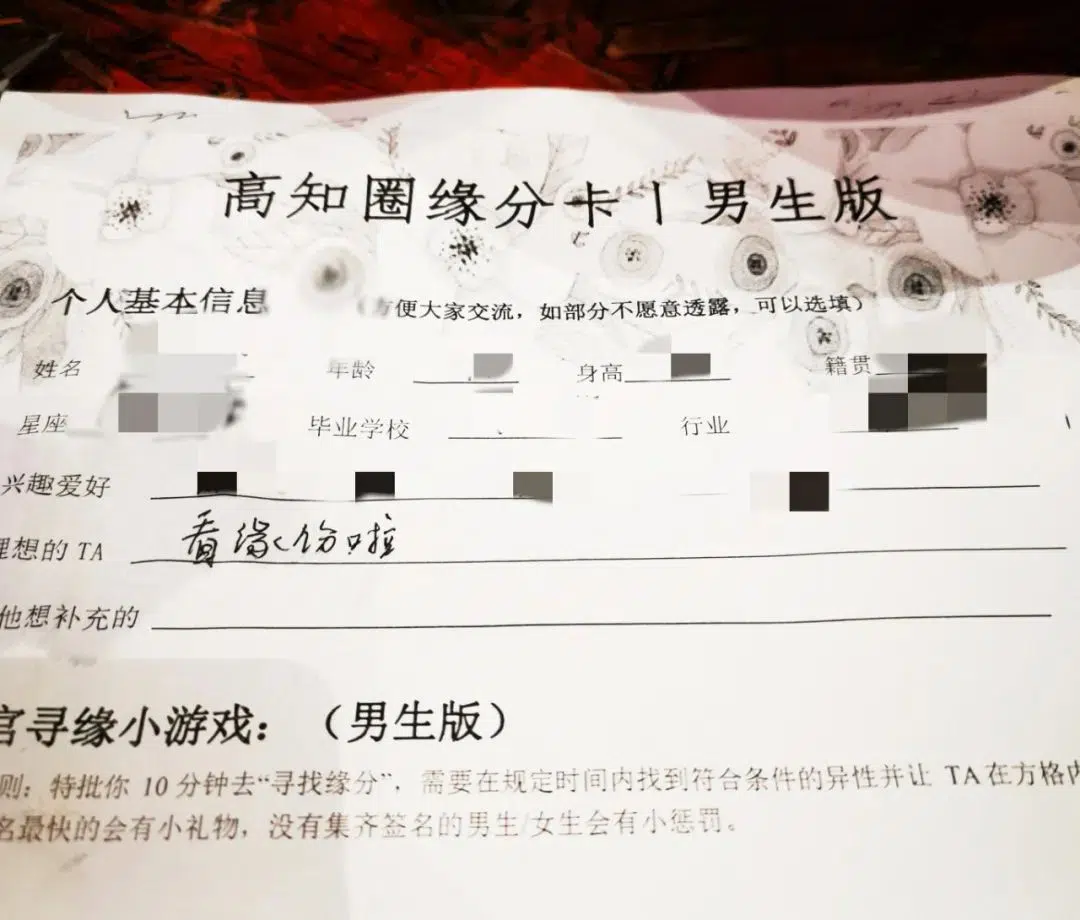 高知圈缘分卡丨男生版
个人基本信息 方便大家交流，如部分不愿意透露，可以选填）
姓名 年龄 身高 籍贯
星座 毕业学校 行业
兴趣爱好
理想的 TA 看缘份啦
他想补充的
宫寻缘小游戏：（男生版）
则：特批你 10 分钟去“寻找缘分”，需要在规定时间内找到符合条件的异性并让 TA 在方格内
名最快的会有小礼物，没有集齐签名的男生/女生会有小惩罚。